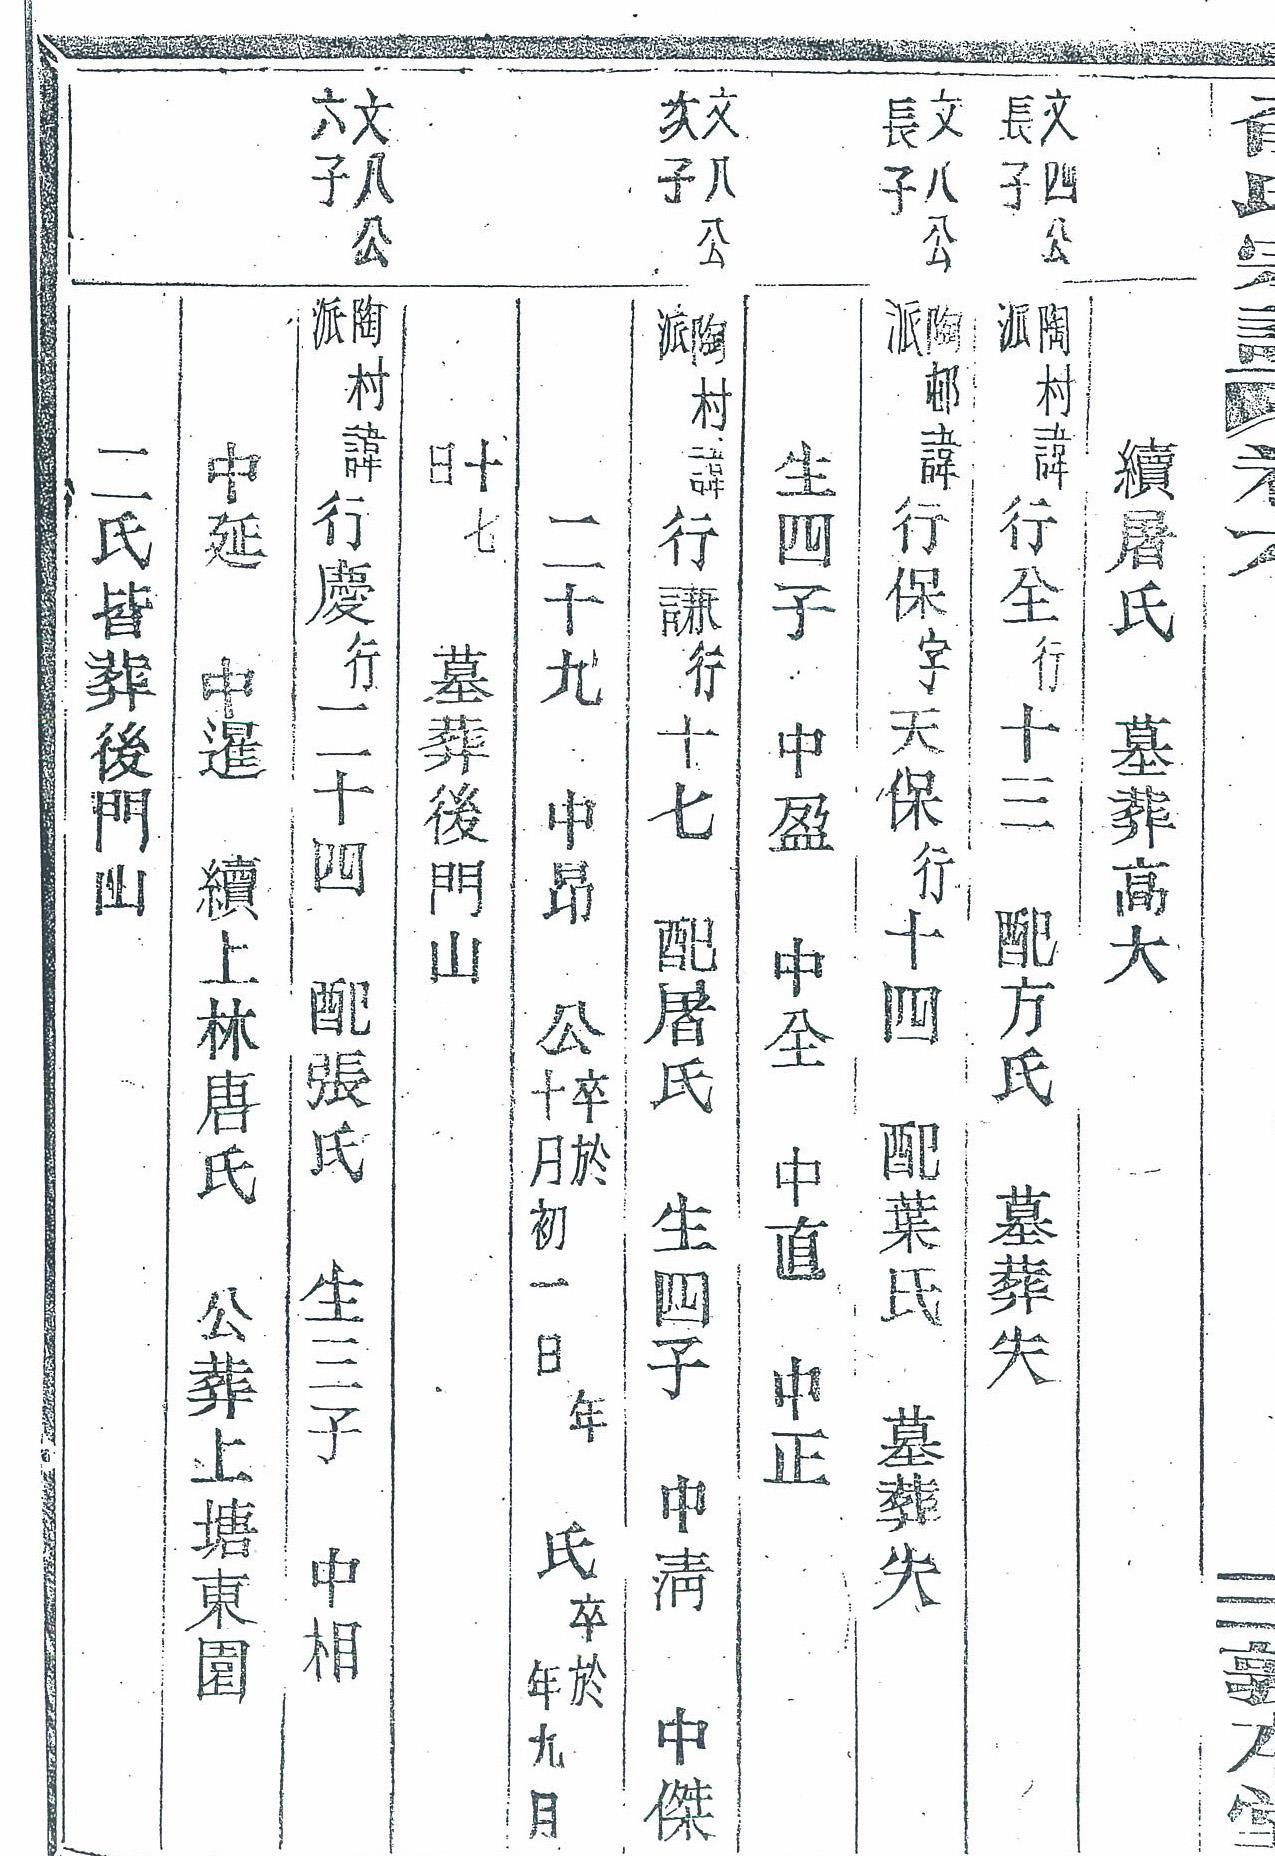 續屠氏 墓葬高大
文四公長子
陶村派諱行全行十三 配方氏 墓葬失
文八公長子
陶邨派諱行保字天保行十四 配葉氏 墓葬失
生四子 中盈 中全 中直 中正
文八公次子
陶村派諱行謙行十七 配屠氏 生四子 中清 中傑
二十九 中昂 公卒於 年十月初一日 氏卒於 年九月
十七日 墓葬後門山
文八公六子
陶村派諱行慶行二十四 配張氏 生三子 中相
中延 中暹 續上林唐氏 公葬上塘東園
二氏皆葬後門山